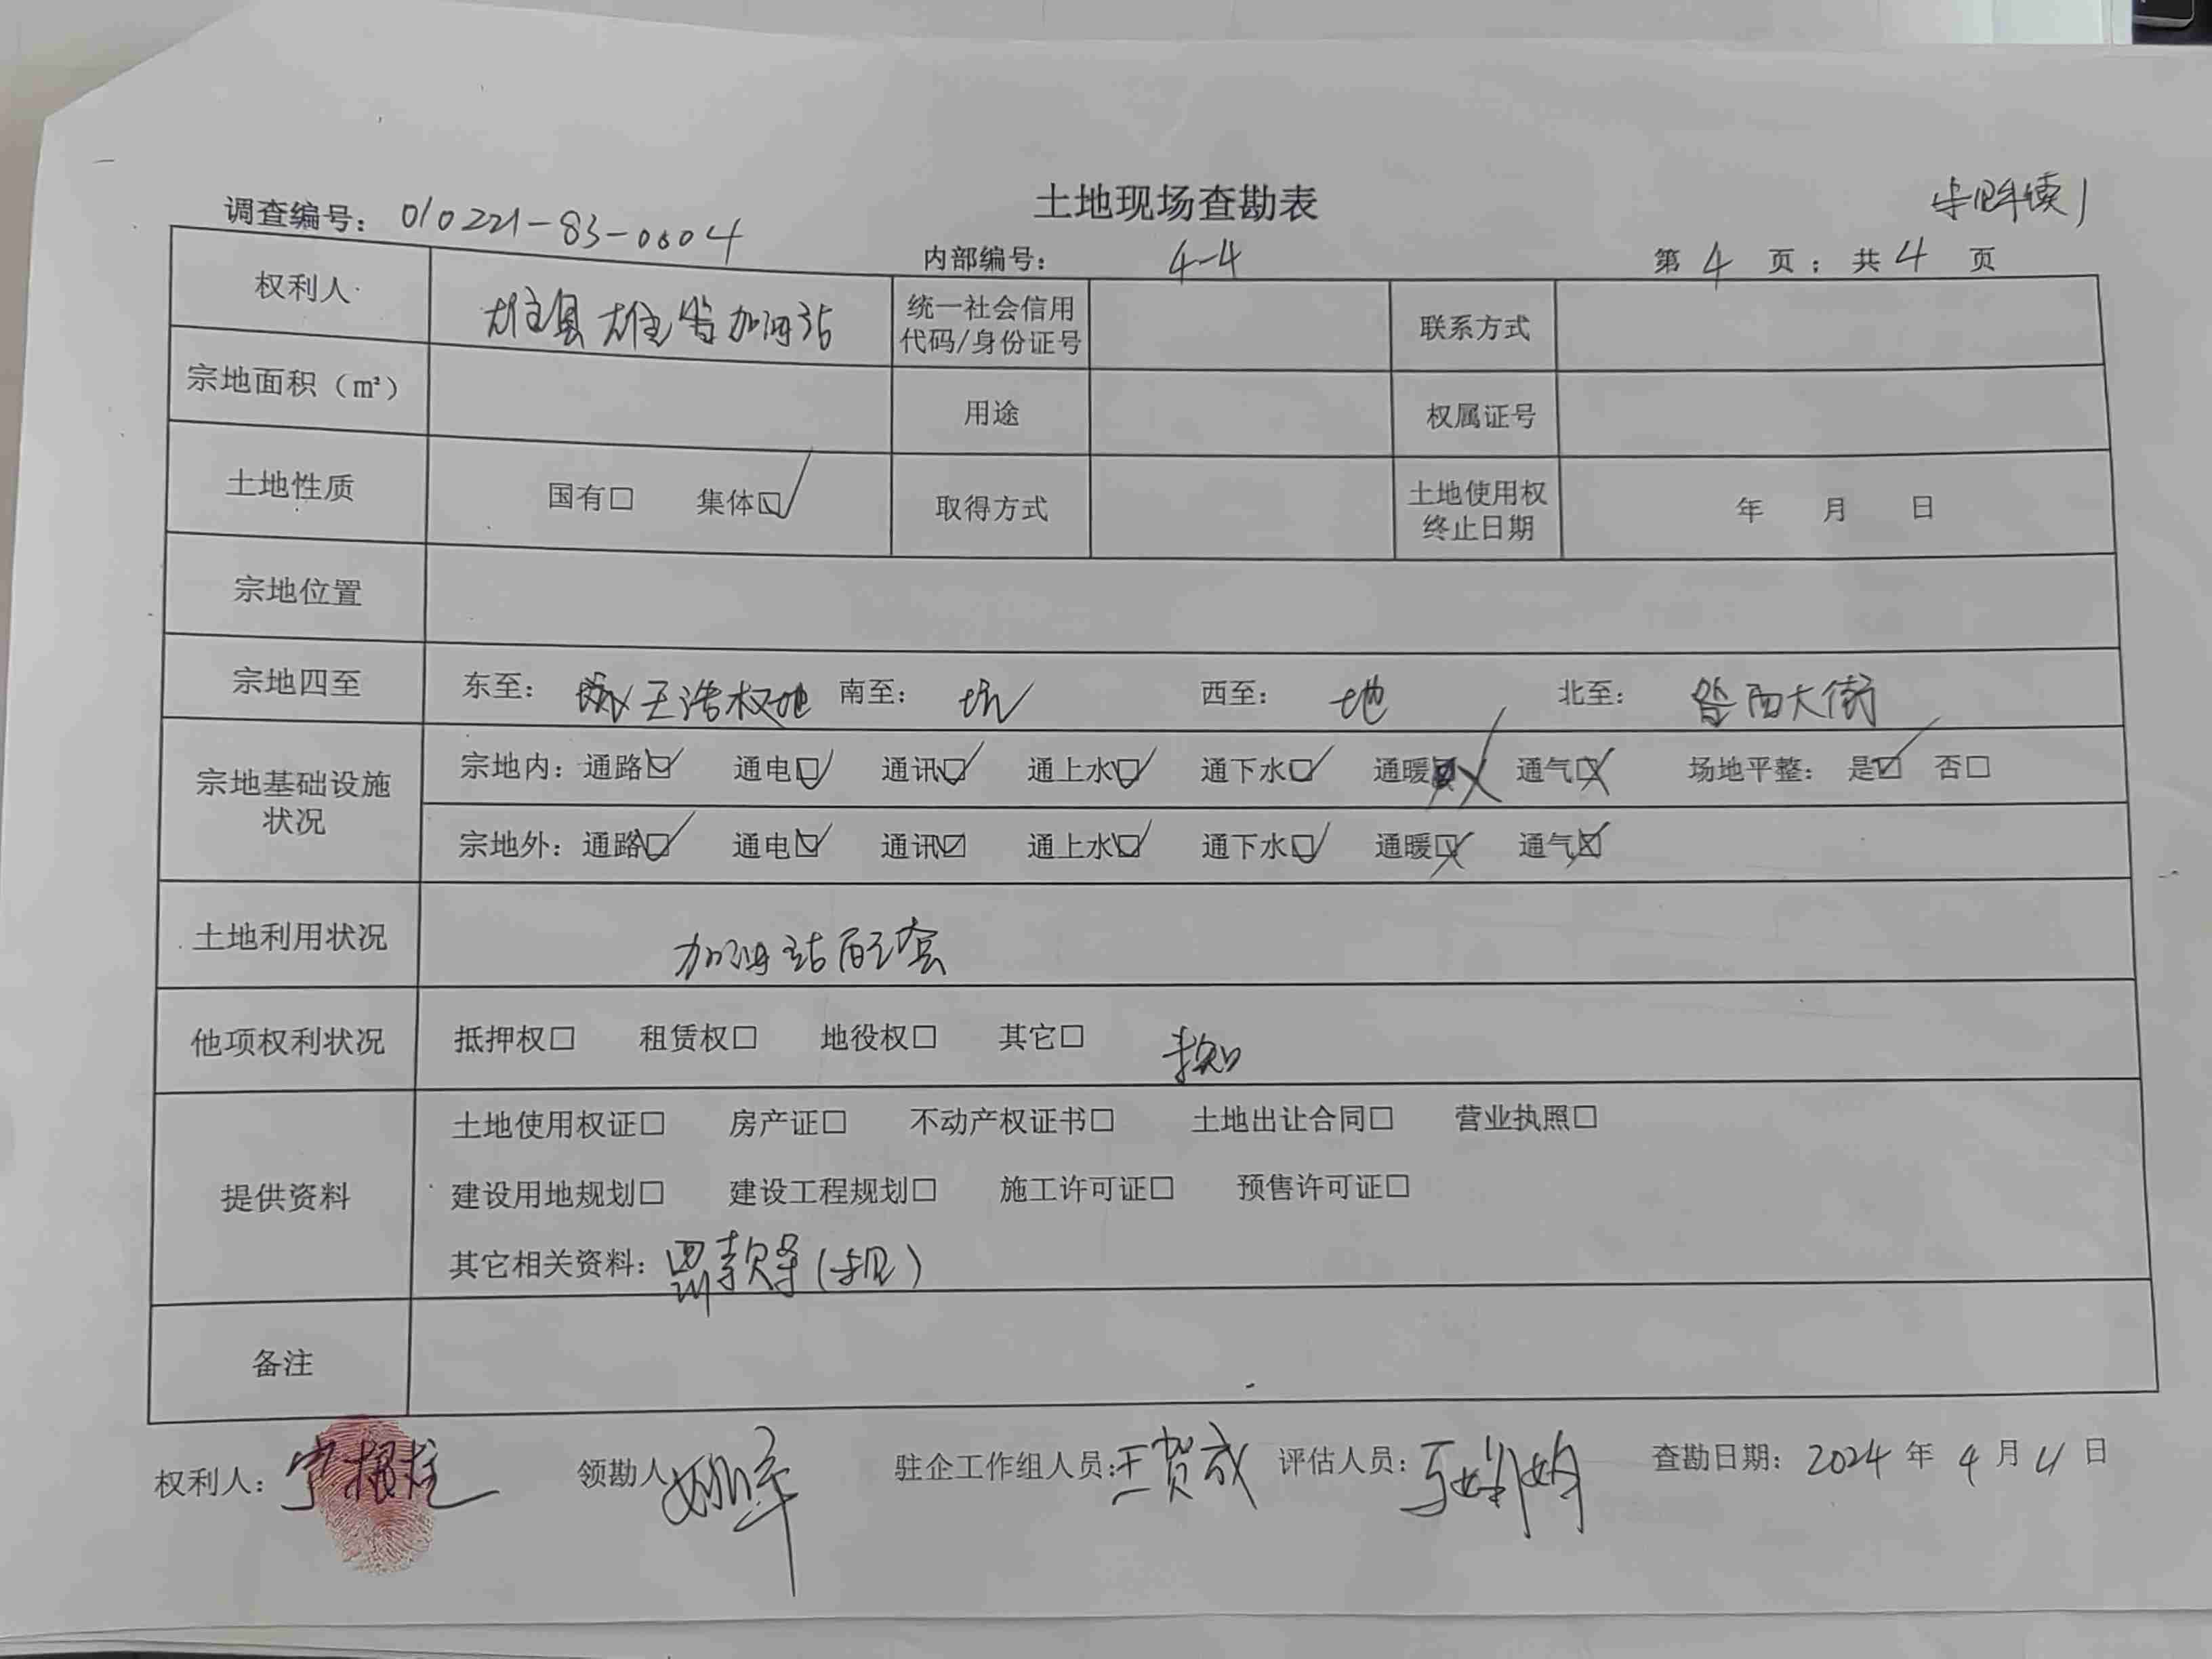 土地现场查勘表
调查编号：010221-83-0604 内部编号： 4-4 第 4 页；共 4 页
权利人 雄县雄昝加油站 统一社会信用代码/身份证号 联系方式
宗地面积（㎡） 用途 权属证号
土地性质 国有□ 集体☑ 取得方式 土地使用权终止日期 年 月 日
宗地位置
宗地四至 东至： 王浩权地 南至： 坑 西至： 地 北至： 昝西大街
宗地基础设施状况 宗地内：通路☑ 通电☑ 通讯☑ 通上水☑ 通下水☑ 通暖☒ 通气☒ 场地平整： 是☑ 否□
宗地外：通路☑ 通电☑ 通讯☑ 通上水☑ 通下水☑ 通暖☒ 通气☒
土地利用状况 加油站配套
他项权利状况 抵押权□ 租赁权□ 地役权□ 其它□ 未知
提供资料 土地使用权证□ 房产证□ 不动产权证书□ 土地出让合同□ 营业执照□
建设用地规划□ 建设工程规划□ 施工许可证□ 预售许可证□
其它相关资料：罚款条
备注
权利人： 领勘人 驻企工作组人员：王贺成 评估人员： 查勘日期：2024 年 4 月 日